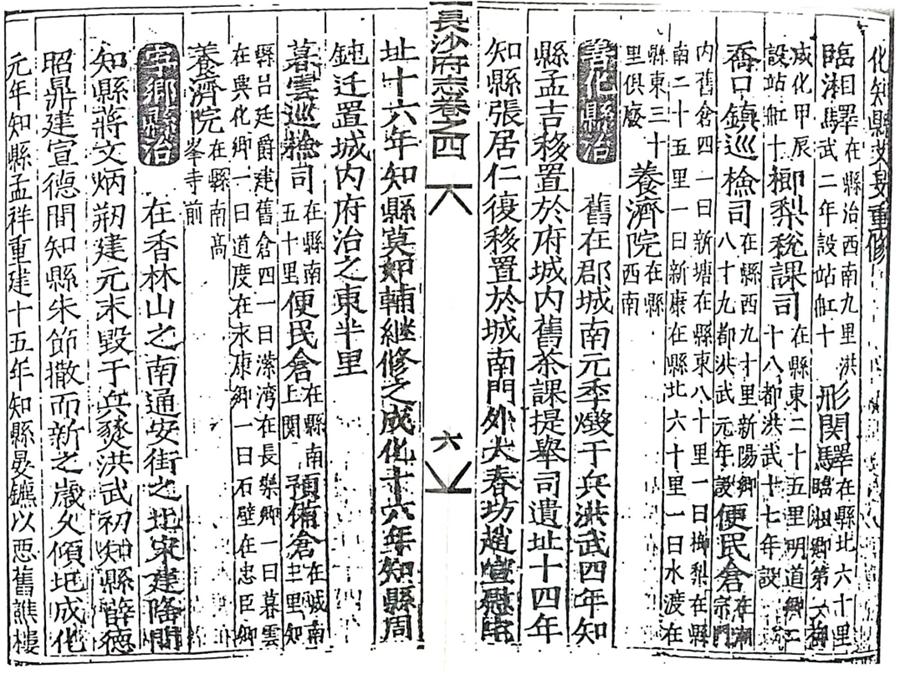 化知縣艾旻重修
臨湘驛在縣治西南九里洪武二年設站舡十彤関驛在縣北六十里臨湘鄉第六都
成化甲辰設站舡十㮾梨稅課司在縣東二十五里明道鄉二十八都洪武十七年設
喬口鎮巡檢司在縣西九十里新陽鄉八十九都洪武元年設便民倉在潮宗門
内舊倉四一曰新塘在縣東八十里一曰㮾梨在縣南二十五里一曰新康在縣北六十里一曰水渡在
縣東三十里俱廢養濟院在縣西南
善化縣治 舊在郡城南元季燬于兵洪武四年知
縣孟吉移置於府城内舊茶課提舉司遺址十四年
知縣張居仁復移置於城南門外大春坊趙宣慰宅
長沙府志卷之四 六
址十六年知縣莫如輔継修之成化十六年知縣周
鈍迁置城内府治之東半里
暮雲巡檢司在縣南五十里便民倉在縣南上関預備倉在城南三里知
縣吕廷爵建舊倉四一曰湾在長樂鄉一曰暮雲在興化鄉一曰道度在末康鄉一曰石壁在忠臣鄉
養濟院在縣南高峯寺前
寧鄉縣治 在香林山之南通安街之北宋建隆間
知縣蔣文炳剏建元末毀于兵燹洪武初知縣薛德
昭鼎建宣德間知縣朱節撤而新之歲久傾圮成化
元年知縣孟祥重建十五年知縣晏以思舊譙樓